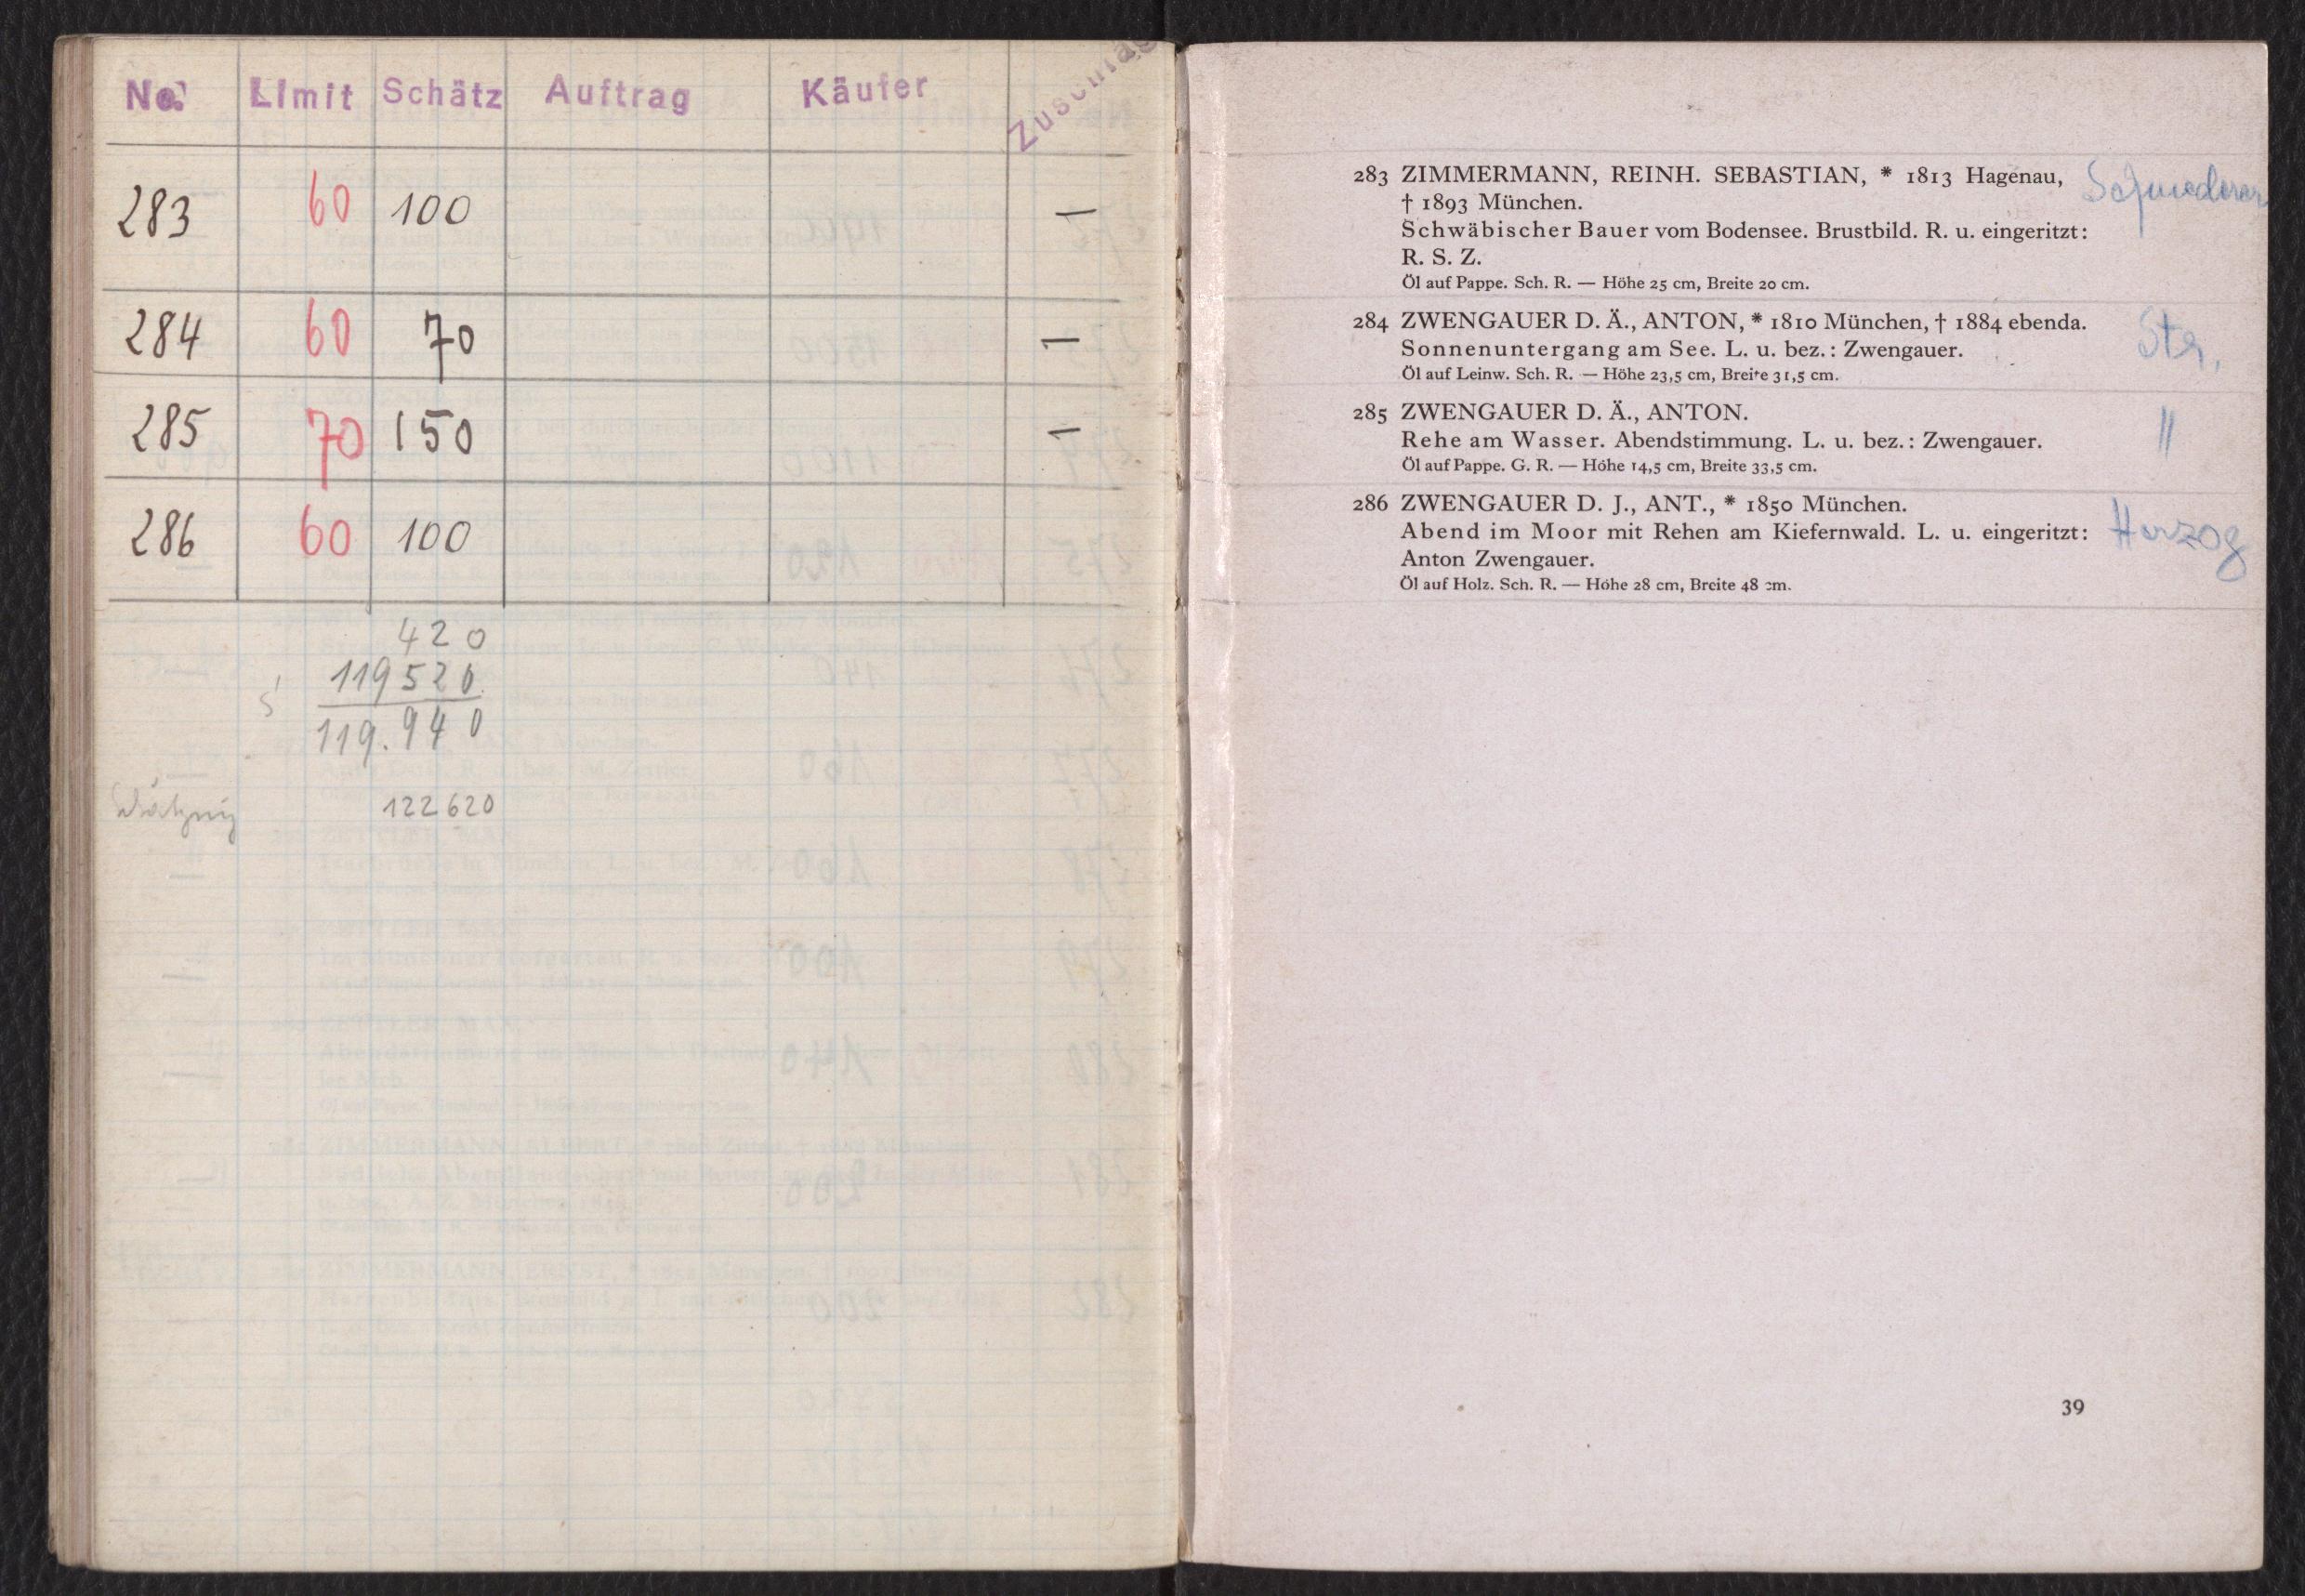 No. Limit Schätz Auftrag Käufer Zuschlag
283 60 100 —
284 60 70 —
285 70 150 —
286 60 100
420
119520
119.940
122620
283 ZIMMERMANN, REINH. SEBASTIAN, * 1813 Hagenau,
† 1893 München.
Schwäbischer Bauer vom Bodensee. Brustbild. R. u. eingeritzt:
R. S. Z.
Öl auf Pappe. Sch. R. — Höhe 25 cm, Breite 20 cm.
284 ZWENGAUER D. Ä., ANTON, * 1810 München, † 1884 ebenda.
Str.
Sonnenuntergang am See. L. u. bez.: Zwengauer.
Öl auf Leinw. Sch. R. — Höhe 23,5 cm, Breite 31,5 cm.
285 ZWENGAUER D. Ä., ANTON.
"
Rehe am Wasser. Abendstimmung. L. u. bez.: Zwengauer.
Öl auf Pappe. G. R. — Höhe 14,5 cm, Breite 33,5 cm.
286 ZWENGAUER D. J., ANT., * 1850 München.
Herzog
Abend im Moor mit Rehen am Kiefernwald. L. u. eingeritzt:
Anton Zwengauer.
Öl auf Holz. Sch. R. — Höhe 28 cm, Breite 48 cm.
39